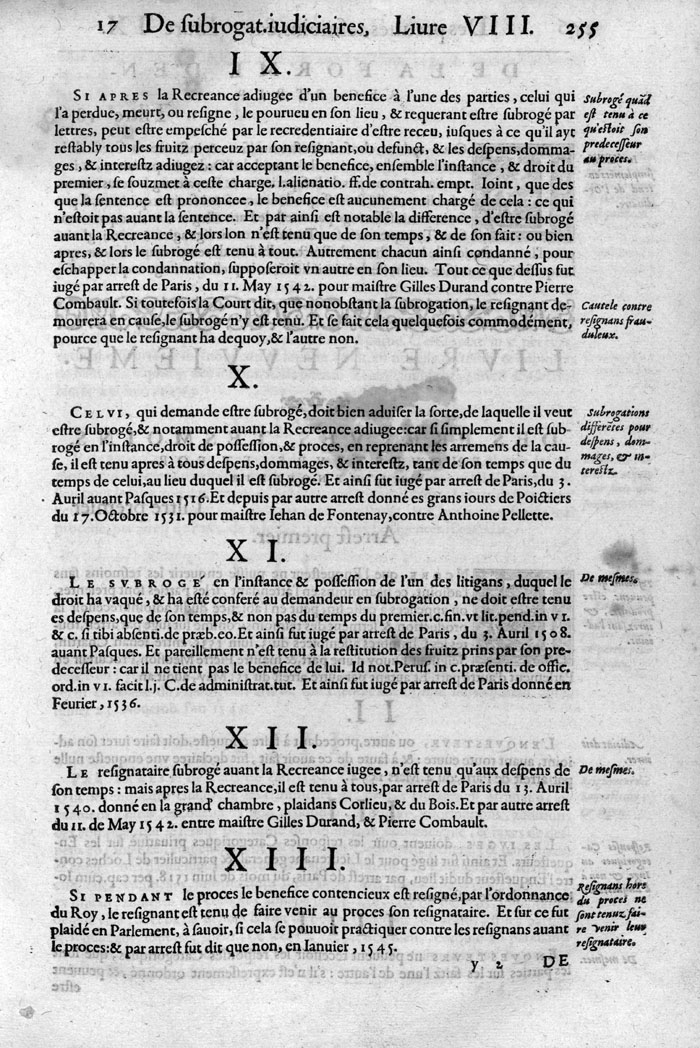 17 De ſubrogat.iudiciaires, Liure VIII. 255
IX.
SI APRES la Recreance adiugee d'un benefice à l'une des parties, celui qui
l'a perdue, meurt, ou reſigne, le pourueu en ſon lieu, & requerant eſtre ſubrogé par
lettres, peut eſtre empeſché par le recredentiaire d'eſtre receu, iuſques à ce qu'il ayt
reſtably tous les fruitz perceuz par ſon reſignant, ou defunct, & les deſpens, domma-
ges, & intereſtz adiugez: car acceptant le benefice, enſemble l'inſtance, & droit du
premier, ſe ſouzmet à ceſte charge. l.alienatio. ff.de contrah. empt. Ioint, que des
que la ſentence est prononcee, le benefice eſt aucunement chargé de cela: ce qui
n'eſtoit pas auant la ſentence. Et par ainſi eſt notable la difference, d'eſtre ſubrogé
auant la Recreance, & lors lon n'eſt tenu que de ſon temps, & de ſon fait: ou bien
apres, & lors le ſubrogé eſt tenu à tout. Autrement chacun ainſi condanné, pour
eſchapper la condannation, ſuppoſeroit vn autre en ſon lieu. Tout ce que deſſus fut
iugé par arreſt de Paris, du 11. May 1542. pour maiſtre Gilles Durand contre Pierre
Combault. Si toutefois la Court dit, que nonobſtant la ſubrogation, le reſignant de-
mourera en cauſe, le ſubrogé n'y eſt tenu. Et ſe fait cela quelquefois commodément,
pource que le reſignant ha dequoy, & l'autre non.
Subrogé quãd
eſt tenu à ce
qu'eſtoit ſon
predeceſſeur
au proces.
Cautele contre
reſignans frau-
duleux.
X.
CELVI, qui demande eſtre ſubrogé, doit bien aduiſer la ſorte, de laquelle il veut
eſtre ſubrogé, & notamment auant la Recreance adiugee: car ſi ſimplement il eſt ſub-
rogé en l'inſtance, droit de poſſeſſion, & proces, en reprenant les arremens de la cau-
ſe, il eſt tenu apres à tous deſpens, dommages, & intereſtz, tant de ſon temps que du
temps de celui, au lieu duquel il eſt ſubrogé. Et ainſi fut iugé par arreſt de Paris, du 3.
Auril auant Paſques 1516. Et depuis par autre arreſt donné es grans iours de Poictiers
du 17. Octobre 1531. pour maiſtre Iehan de Fontenay, contre Anthoine Pellette.
Subrogations
differẽtes pour
deſpens, dom-
mages, & in-
tereſtz.
XI.
LE SVBROGÉ en l'inſtance & poſſeſſion de l'un des litigans, duquel le
droit ha vaqué, & ha eſté conferé au demandeur en ſubrogation, ne doit eſtre tenu
es deſpens, que de ſon temps, & non pas du temps du premier. c.fin. vt lit.pend. in VI.
& c. ſi tibi abſenti. de præb. eo. Et ainſi fut iugé par arreſt de Paris, du 3. Auril 1508.
auant Paſques. Et pareillement n'eſt tenu à la reſtitution des fruitz prins par ſon pre-
deceſſeur: car il ne tient pas le benefice de lui. Id not. Peruſ. in c.præſenti. de offic.
ord. in VI. facit l.j. C. de adminiſtrat. tut. Et ainſi fut iugé par arreſt de Paris donné en
Feurier, 1536.
De meſmes.
XII.
LE reſignataire ſubrogé auant la Recreance iugee, n'eſt tenu qu'aux deſpens de
ſon temps: mais apres la Recreance, il eſt tenu à tous, par arreſt de Paris du 13. Auril
1540. donné en la grand' chambre, plaidans Corlieu, & du Bois. Et par autre arreſt
du 11. de May 1542. entre maiſtre Gilles Durand, & Pierre Combault.
De meſmes.
XIII.
SI PENDANT le proces le benefice contencieux eſt reſigné, par l'ordonnance
du Roy, le reſignant eſt tenu de faire venir au proces ſon reſignataire. Et ſur ce fut
plaidé en Parlement, à ſauoir, ſi cela ſe pouuoit practiquer contre les reſignans auant
le proces: & par arreſt fut dit que non, en Ianuier, 1545.
Reſignans hors
du proces ne
ſont tenuz fai-
re venir leur
reſignataire.
y 2 DE